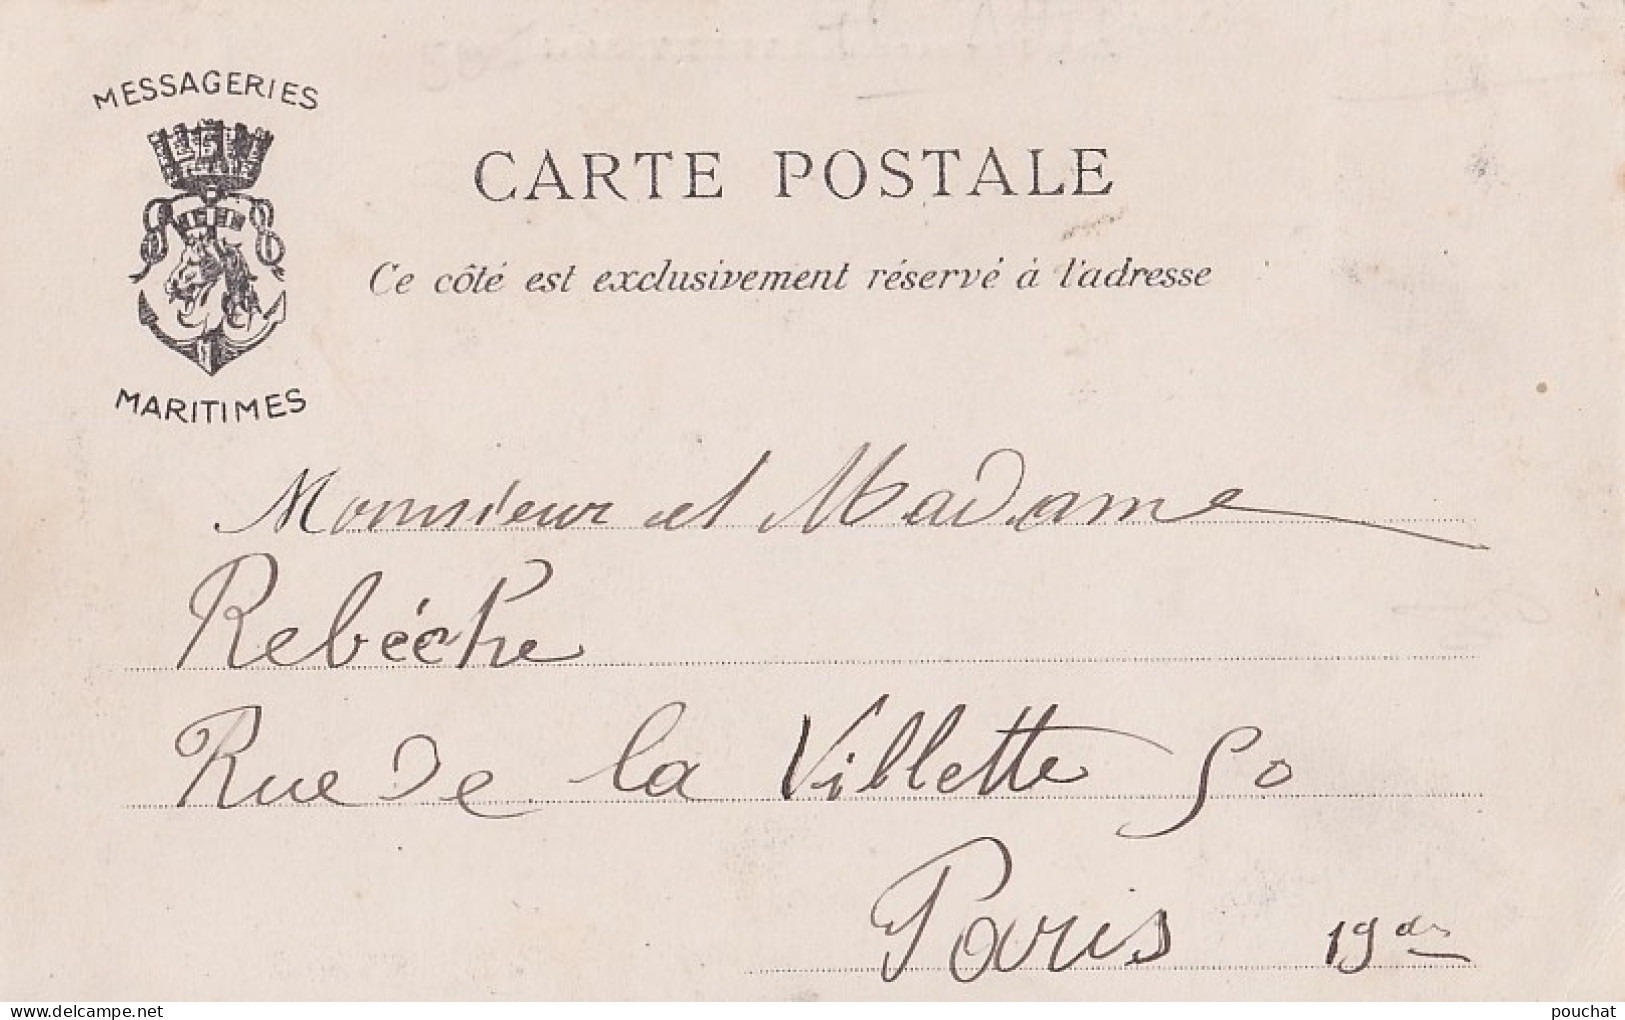 MESSAGERIES
MARITIMES
CARTE POSTALE
Ce côté est exclusivement réservé à l'adresse
Monsieur et Madame
Rebéche
Rue de la Villette 50
Paris 19
delcampe.net
pouchat